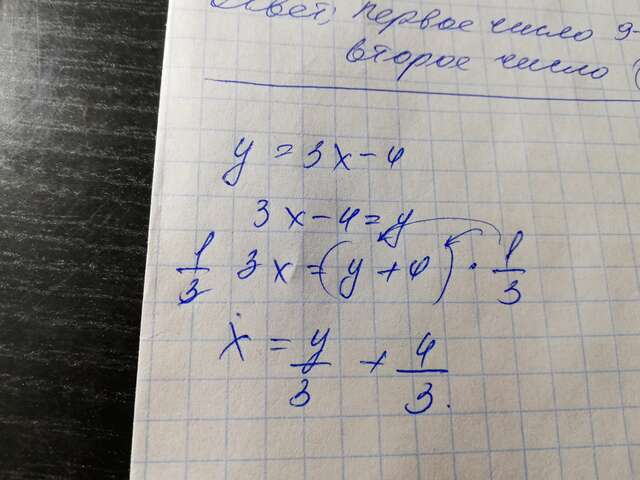 Ответ: первое число 9-
второе число (
y = 3x - 4
3x - 4 = y
1/3 3x = (y + 4) · 1/3
x = y/3 + 4/3.